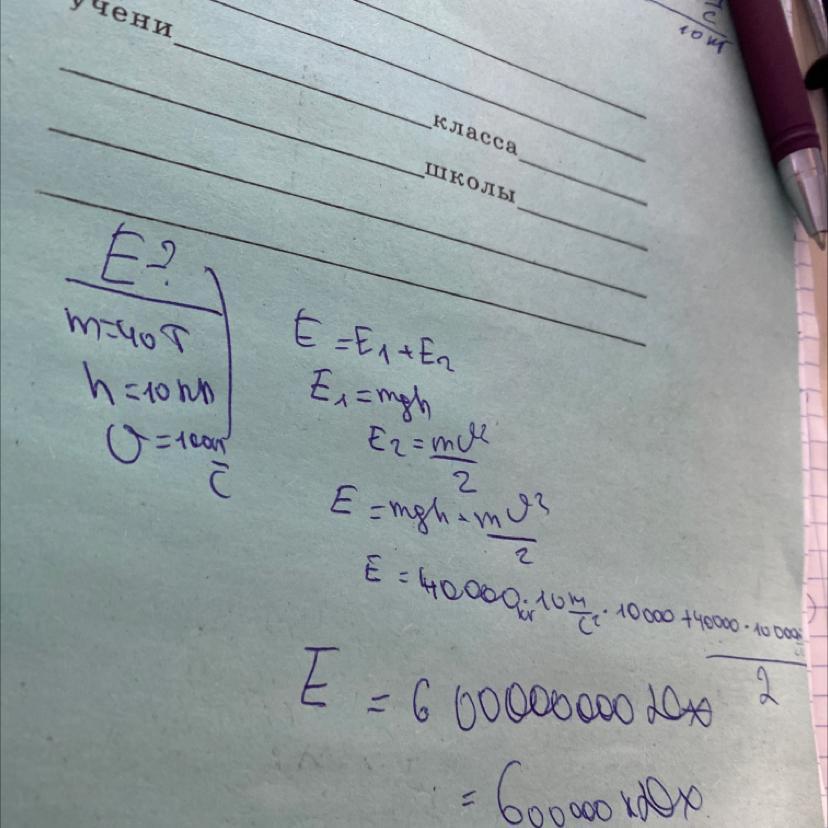 c
10 кг
учени
класса
школы
E?
m=40т
h=10км
υ=100м/с
E=E₁+E₂
E₁=mgh
E₂=mυ²/2
E=mgh+mυ²/2
E=40000кг·10м/с²·10000+40000·10000/2
E=6 000000000 Дж
=6000000 кДж